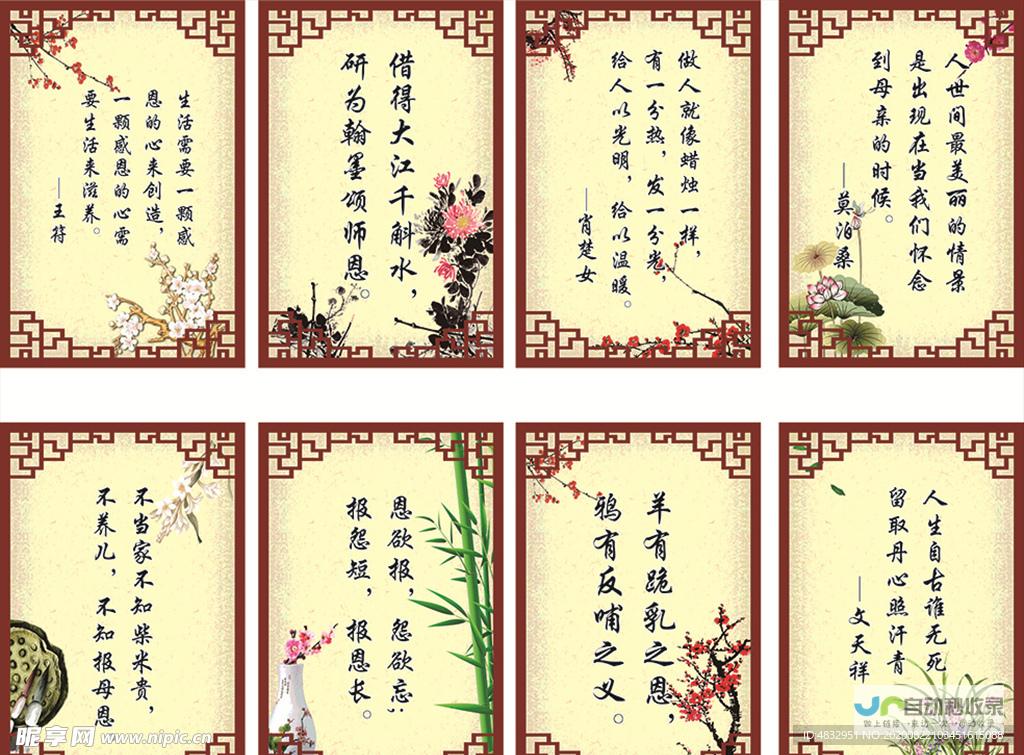 生活需要一颗感
恩的心来创造，
一颗感恩的心需
要生活来滋养。
——王符
借得大江千斛水，
研为翰墨颂师恩。
做人就像蜡烛一样，
有一分热，发一分光，
给人以光明，给以温暖。
——肖楚女
人世间最美丽的情景
是出现在当我们怀念
到母亲的时候。
——莫泊桑
不当家不知柴米贵，
不养儿，不知报母恩
恩欲报，怨欲忘；
报怨短，报恩长。
羊有跪乳之恩，
鸦有反哺之义。
人生自古谁无死
留取丹心照汗青
——文天祥
自动秒收录
做上链接·来访一次·自动收录
昵享网 www.nipic.cn